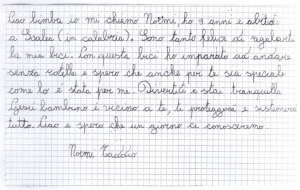 Ciao bimba io mi chiamo Noemi, ho 9 anni e abito
a Scalea (in calabria). Sono tanto felice di regalarti
la mia bici. Con questa bici ho imparato ad andare
senza rotelle e spero che anche per te sia speciale
come lo è stata per me. Divertiti e stai tranquilla
Gesù bambino è vicino a te, ti proteggerà e sistemerà
tutto. Ciao e spero che un giorno ci conosceremo.
Noemi Taddio